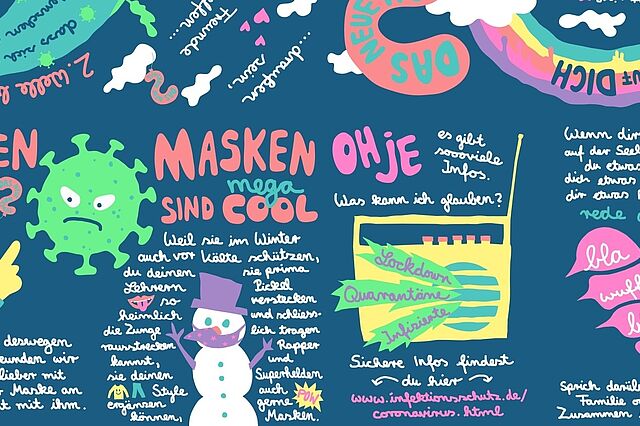 ... dass sich
2. Welle
Freunde
treffen...
... draußen
sein,
DAS NEUE
AUF DICH
EN
S
deswegen
wir
lieber mit
Maske an
mit ihm.
MASKEN
mega
SIND COOL
Weil sie im Winter
auch vor Kälte schützen,
du deinen
Lehrern
so
heimlich
die Zunge
rausstrecken
kannst,
sie deinen
Style
ergänzen
können,
sie prima
Pickel
verstecken
und schliess-
lich tragen
Rapper
und
Superhelden
auch FUN
gerne
Masken.
OH JE
es gibt
soooviele
Infos.
Was kann ich glauben?
Lockdown
Quarantäne
Infizierte
Sichere Infos findest
du hier
www.infektionsschutz.de/
coronavirus.html
Wenn dir
auf der Seel
du etwas
dich etwas
dir etwas
rede
bla
wuff
bl
Sprich darüb
Familie o
Zusammen